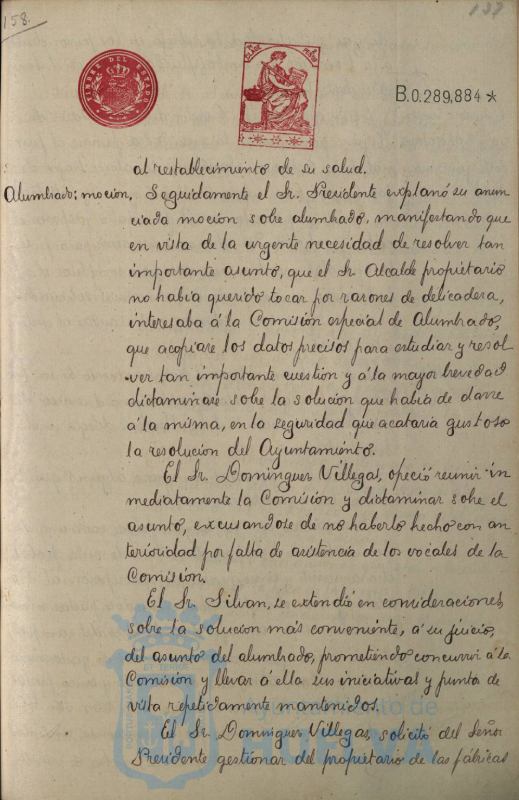 158.
137
TIMBRE DEL ESTADO
B.0.289,884 *
al restablecimiento de su salud.
Alumbrado; moción. Seguidamente el Sr. Presidente explanó su anun
ciada moción sobre alumbrado, manifestando que
en vista de la urgente necesidad de resolver tan
importante asunto, que el Sr. Alcalde propietario
no habia querido tocar por razones de delicadeza,
interesaba á la Comisión especial de Alumbrado,
que acopiare los datos precisos para estudiar y resol
ver tan importante cuestion y á la mayor brevedad
dictaminare sobre la solución que habia de darse
á la misma, en la seguridad que acataria gustoso
la resolución del Ayuntamiento.
El Sr. Dominguez Villegas, ofreció reunir in
mediatamente la Comisión y dictaminar sobre el
asunto, excusandose de no haberlo hecho con an
terioridad por falta de asistencia de los vocales de la
Comisión.
El Sr. Silvan, se extendió en consideraciones,
sobre la solución más conveniente, á su juicio,
del asunto del alumbrado, prometiendo concurrir á la
Comisión y llevar á ella sus iniciativas y punto de
vista repetidamente mantenidos.
El Sr. Dominguez Villegas, solicitó del Señor
Presidente gestionar del propietario de las fábricas
Ayuntamiento de
HUELVA